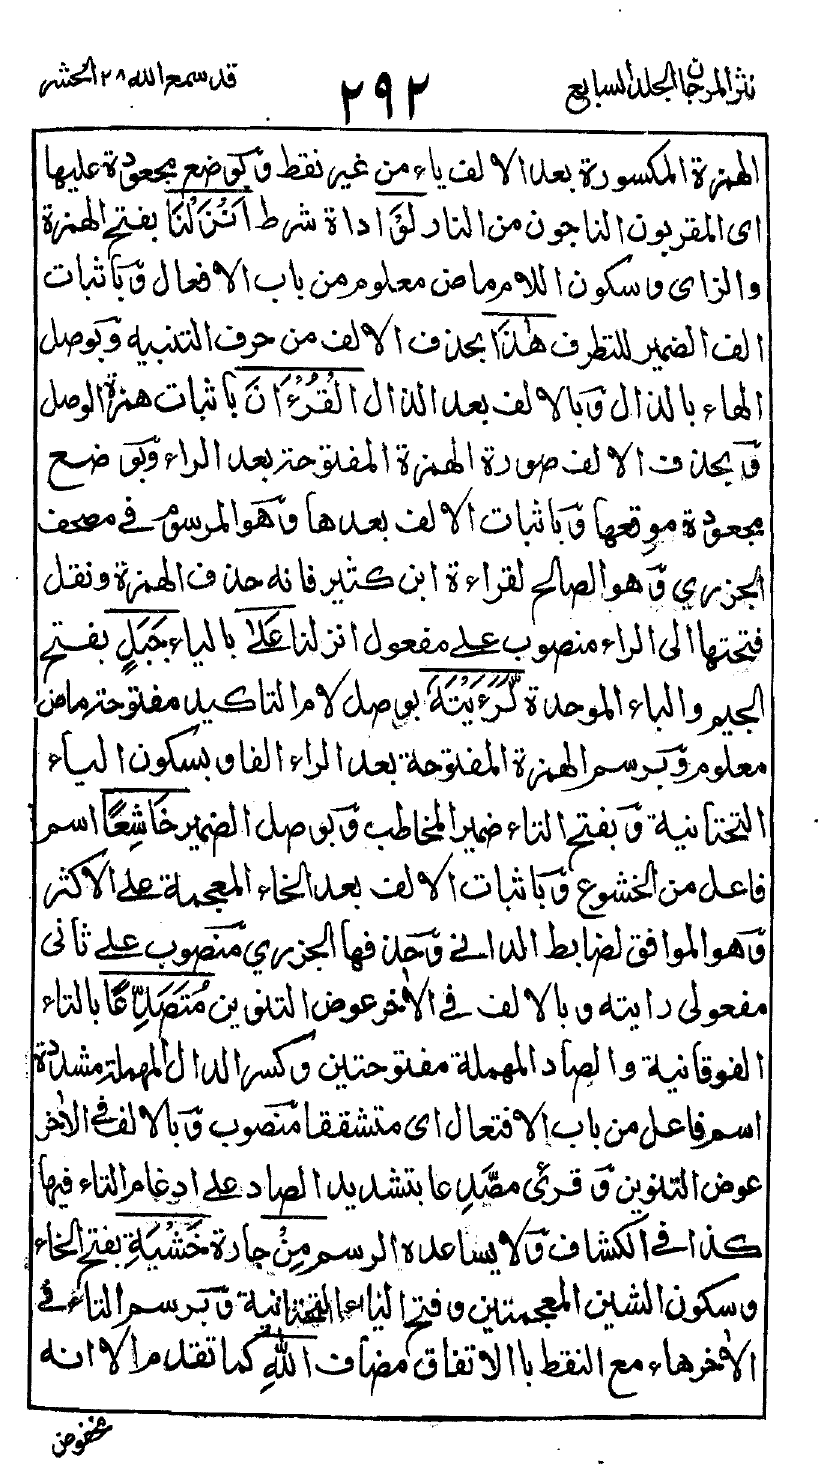 نثر المرجان الجلد السابع
٢٩٢
قد سمع الله ٢٨ الحشر
الهمزة المكسورة بعد الالف ياء من غير نقط وَبوضع مجعودة عليها
اى المقربون الناجون من النار لَوْ اداة شرط اَنْزَلْنَا بفتح الهمزة
والزاى وسكون اللام ماض معلوم من باب الافعال وَباثبات
الف الضمير للتطرف هٰذَا بحذف الالف من حرف التنبيه وَبوصل
الهاء بالذال وَبالالف بعد الذال الْقُرْءَانَ باثبات همزة الوصل
وَبحذف الالف صورة الهمزة المفتوحة بعد الراء وَبوضع
مجعودة موقعها وَباثبات الالف بعدها وَهو المرسوم في مصحف
الجزري وَهو الصالح لقراءة ابن كثير فانه حذف الهمزة ونقل
فتحتها الى الراء منصوب على مفعول انزلنا عَلٰى بالياء جَبَلٍ بفتح
الجيم والباء الموحدة لَّرَءَيْتَهٗ بوصل لام التاكيد مفتوحة ماض
معلوم وَبرسم الهمزة المفتوحة بعد الراء الفا وبسكون الياء
التحتانية وَبفتح التاء ضمير المخاطب وَبوصل الضمير خَاشِعًا اسم
فاعل من الخشوع وَباثبات الالف بعد الخاء المعجمة على الاكثر
وَهو الموافق لضابط الداني وَحذفها الجزري منصوب على ثانى
مفعولى رايته وبالالف في الاٰخر عوض التنوين مُتَصَدِّعًا بالتاء
الفوقانية والصاد المهملة مفتوحتين وكسر الدال المهملة مشددة
اسم فاعل من باب الافتعال اى متشققا منصوب وَبالالف في الاٰخر
عوض التنوين وَقرئ مصَّدِعا بتشديد الصاد على ادغام التاء فيها
كذا في الكشاف وَلا يساعده الرسم مِنْ جارة خَشْيَةِ بفتح الخاء
وسكون الشين المعجمتين وفتح الياء التحتانية وَبرسم التاء في
الاٰخر هاء مع النقط بالاتفاق مضاف اللّٰهِ كما تقدم الا انه
مخفوض